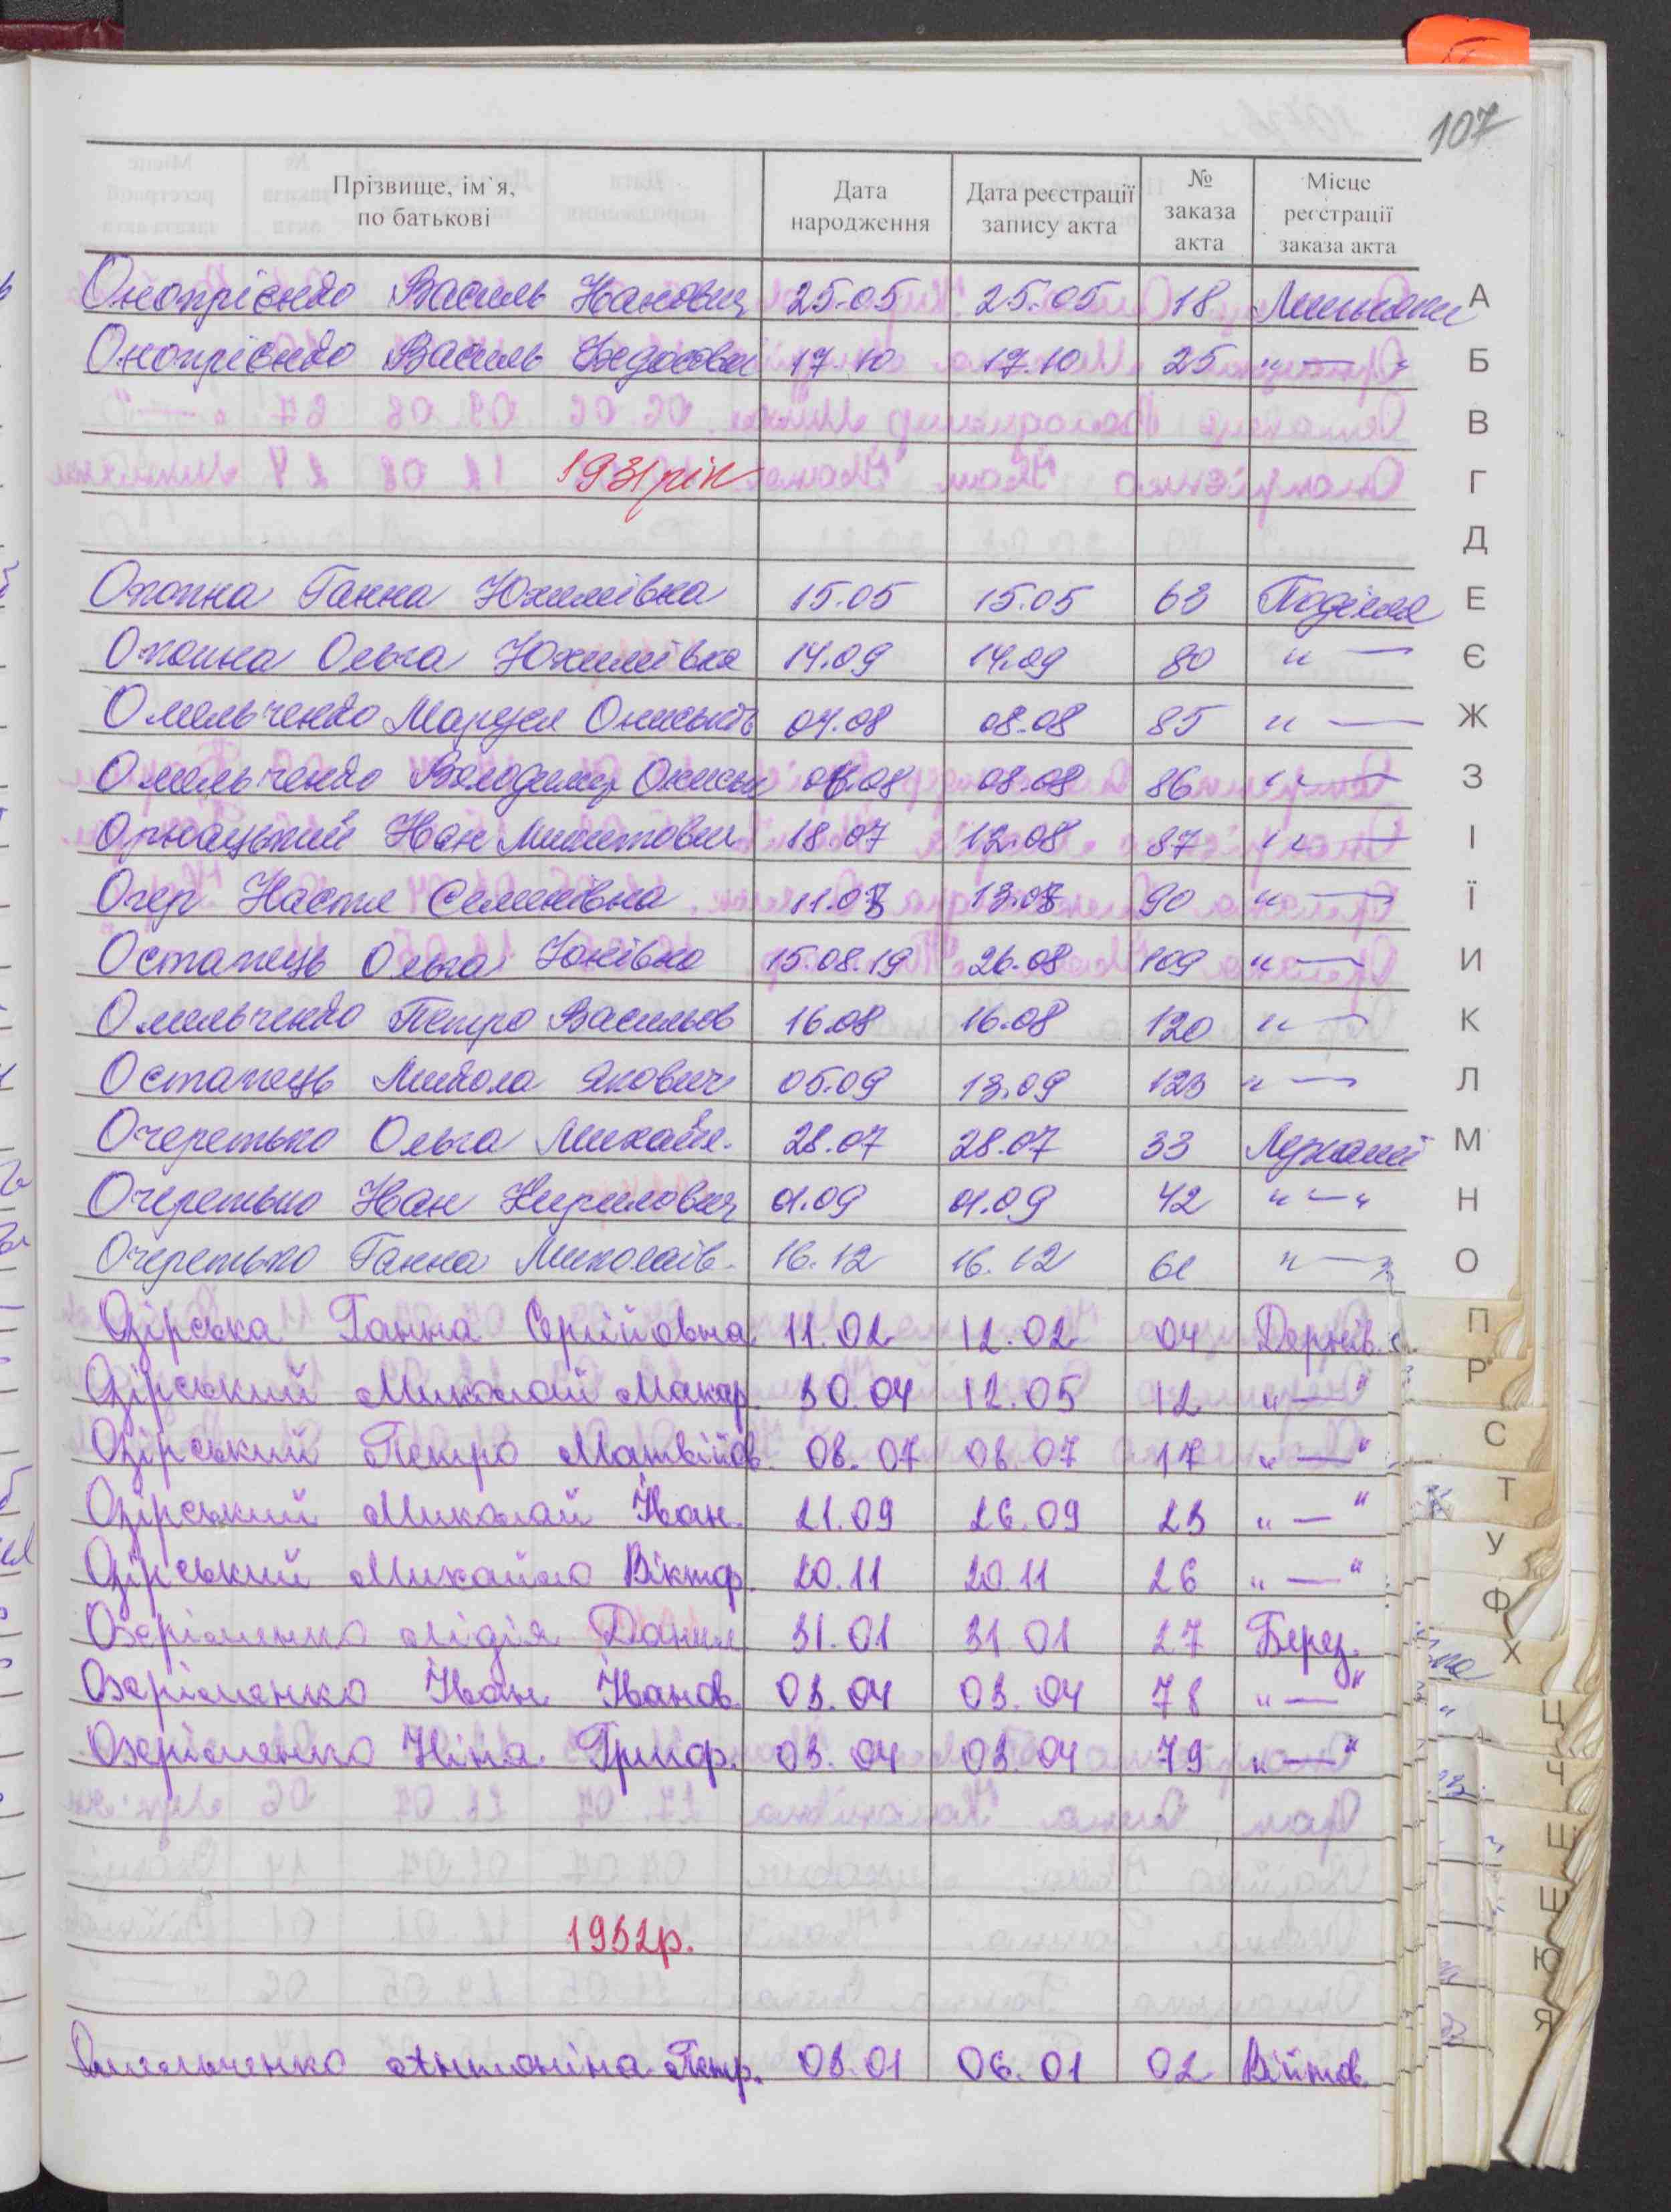 107
Прізвище, ім`я, по батькові | Дата народження | Дата реєстрації запису акта | № заказа акта | Місце реєстрації заказа акта
Онопрієнко Василь Іванович 25.05 25.05 18
Онопрієнко Василь Федосови 17.10 17.10 25 " — "
1931 рік
Охопна Ганна Юхимівка 15.05 15.05 63 Поділля
Охопна Ольга Юхимівка 14.09 14.09 80 " —
Омельченко МарусяОниськів 04.08 08.08 85 " —
Омельченко Володимир Ониськ 08.08 86 " —
Іван Микитович 18.07 12.08 87 " —
Настя Семенівна 90 " —
Остапець Ольга Юхівка 15.08.19 26.08 109 " —
Омельченко Петро Васильов 16.08 16.08 120 " —
Остапець Микола Якович 05.09 13.09 123 " —
Очеретько Ольга Михайл. 28.07 28.07 33
Очеретько Іван Кирилович 01.09 01.09 42 " — "
Очеретько Ганна Миколаїв. 16.12 16.12 61 " — "
Озірська Ганна Сергійовна 11.02 12.02 04 Дернів.
Озірський Миколай Макар. 30.04 12.05 12 " — "
Озірський Петро Матвійов. 06.07 06.07 17 " — "
Озірський Миколай Іван. 21.09 26.09 23 " — "
Озірський Михайло Віктор. 20.11 20.11 26 " — "
Озеріленко Лідія Данил 31.01 31.01 27 Берез.
Озеріленко Іван Іванов. 03.04 03.04 78 " — "
Озеріленко Ніна Григор. 03.04 03.04 79 " — "
1932р.
Омельченко Антоніна Петр. 03.01 06.01 02 Війтов.
А
Б
В
Г
Д
Е
Є
Ж
З
І
Ї
И
К
Л
М
Н
О
П
Р
С
Т
У
Ф
Х
Ц
Ч
Ш
Щ
Ю
Я